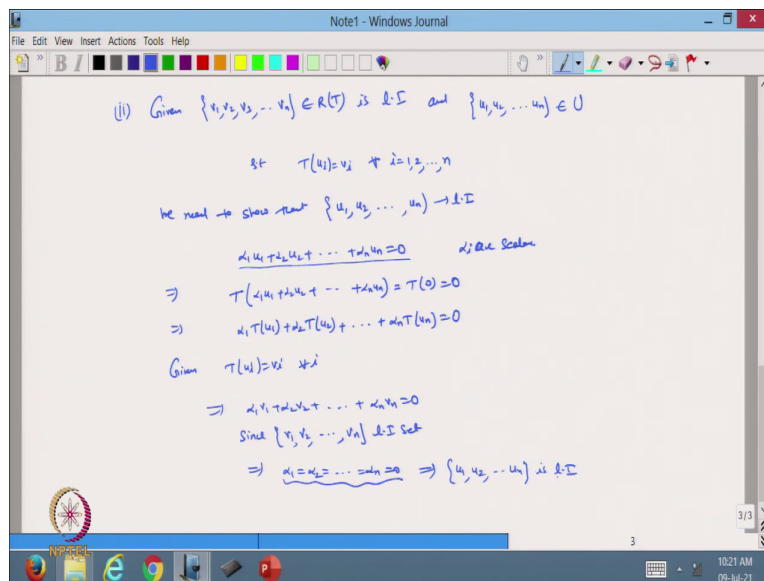 Note1 - Windows Journal
File Edit View Insert Actions Tools Help
B I
(ii) Given {v₁, v₂, v₃, ... vₙ} ∈ R(T) is l.I and {u₁, u₂, ... uₙ} ∈ U
s.t T(uᵢ)=vᵢ ∀ i=1,2,...,n
we need to show that {u₁, u₂, ..., uₙ} → l.I
α₁u₁+α₂u₂+ ... +αₙuₙ=0 αᵢ are scalar
⇒ T(α₁u₁+α₂u₂+ ... +αₙuₙ)=T(0)=0
⇒ α₁T(u₁)+α₂T(u₂)+ ... +αₙT(uₙ)=0
Given T(uᵢ)=vᵢ ∀i
⇒ α₁v₁+α₂v₂+ ... + αₙvₙ=0
Since {v₁, v₂, ..., vₙ} l.I set
⇒ α₁=α₂= ... =αₙ=0 ⇒ {u₁, u₂, ... uₙ} is l.I
3/3
3
NPTEL
10:21 AM
09-Jul-21